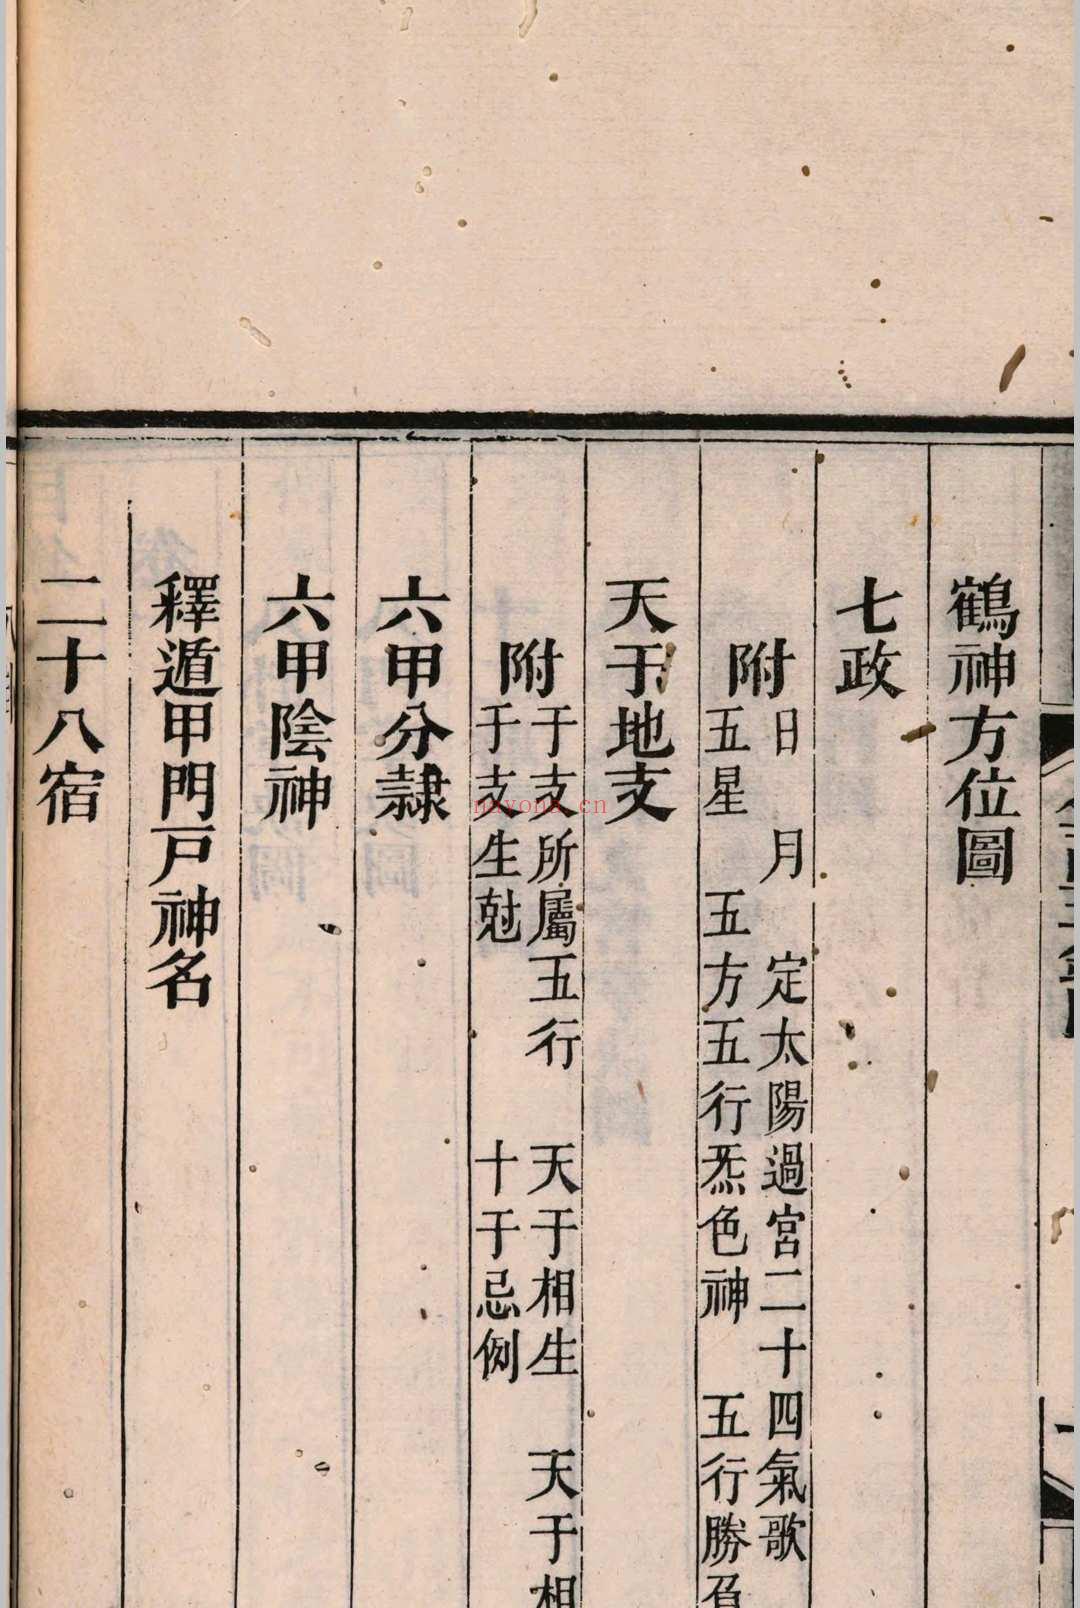 鶴神方位圖
七政
附
日 月 定太陽過宮二十四氣歌
五星 五方五行炁色神 五行勝負
天于地支
附
于支所屬五行 天于相生 天于相
于支生尅 十于忌例
六甲分隷
六甲陰神
釋遁甲門戸神名
二十八宿
nayona.cn